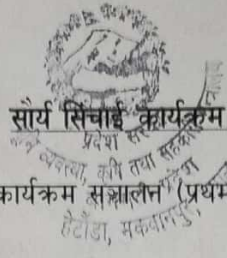 सौर्य सिंचाई कार्यक्रम
प्रदेश
व्यवस्था, कृषि तथा सहकारी
कार्यक्रम सञ्चालन (प्रथम
हेटौंडा, मकवानपुर